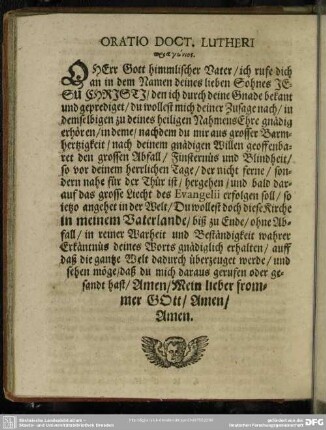 ORATIO DOCT. LUTHERI
O HErr Gott himmlischer Vater / ich rufe dich
an in dem Namen deines lieben Sohnes JE-
SU CHRISTI / den ich durch deine Gnade bekant
und geprediget / du wollest mich deiner Zusage nach / in
demselbigen zu deines heiligen Nahmens Ehre gnädig
erhören / in deme / nachdem du mir aus grosser Barm-
hertzigkeit / nach deinem gnädigen Willen geoffenba-
ret den grossen Abfall / Finsternüs und Blindheit /
so vor deinem herrlichen Tage / der nicht ferne / son-
dern nahe für der Thür ist / hergehen / und bald dar-
auf das grosse Liecht des Evangelii erfolgen soll / so
ietzo angehet in der Welt / Du wollest doch diese Kirche
in meinem Vaterlande / biß zu Ende / ohne Ab-
fall / in reiner Warheit und Beständigkeit wahrer
Erkäntnüs deines Worts gnädiglich erhalten / auff
daß die gantze Welt dadurch überzeuget werde / und
sehen möge / daß du mich daraus gerufen oder ge-
sandt hast / Amen / Mein lieber from-
mer GOtt / Amen /
Amen.
DFG